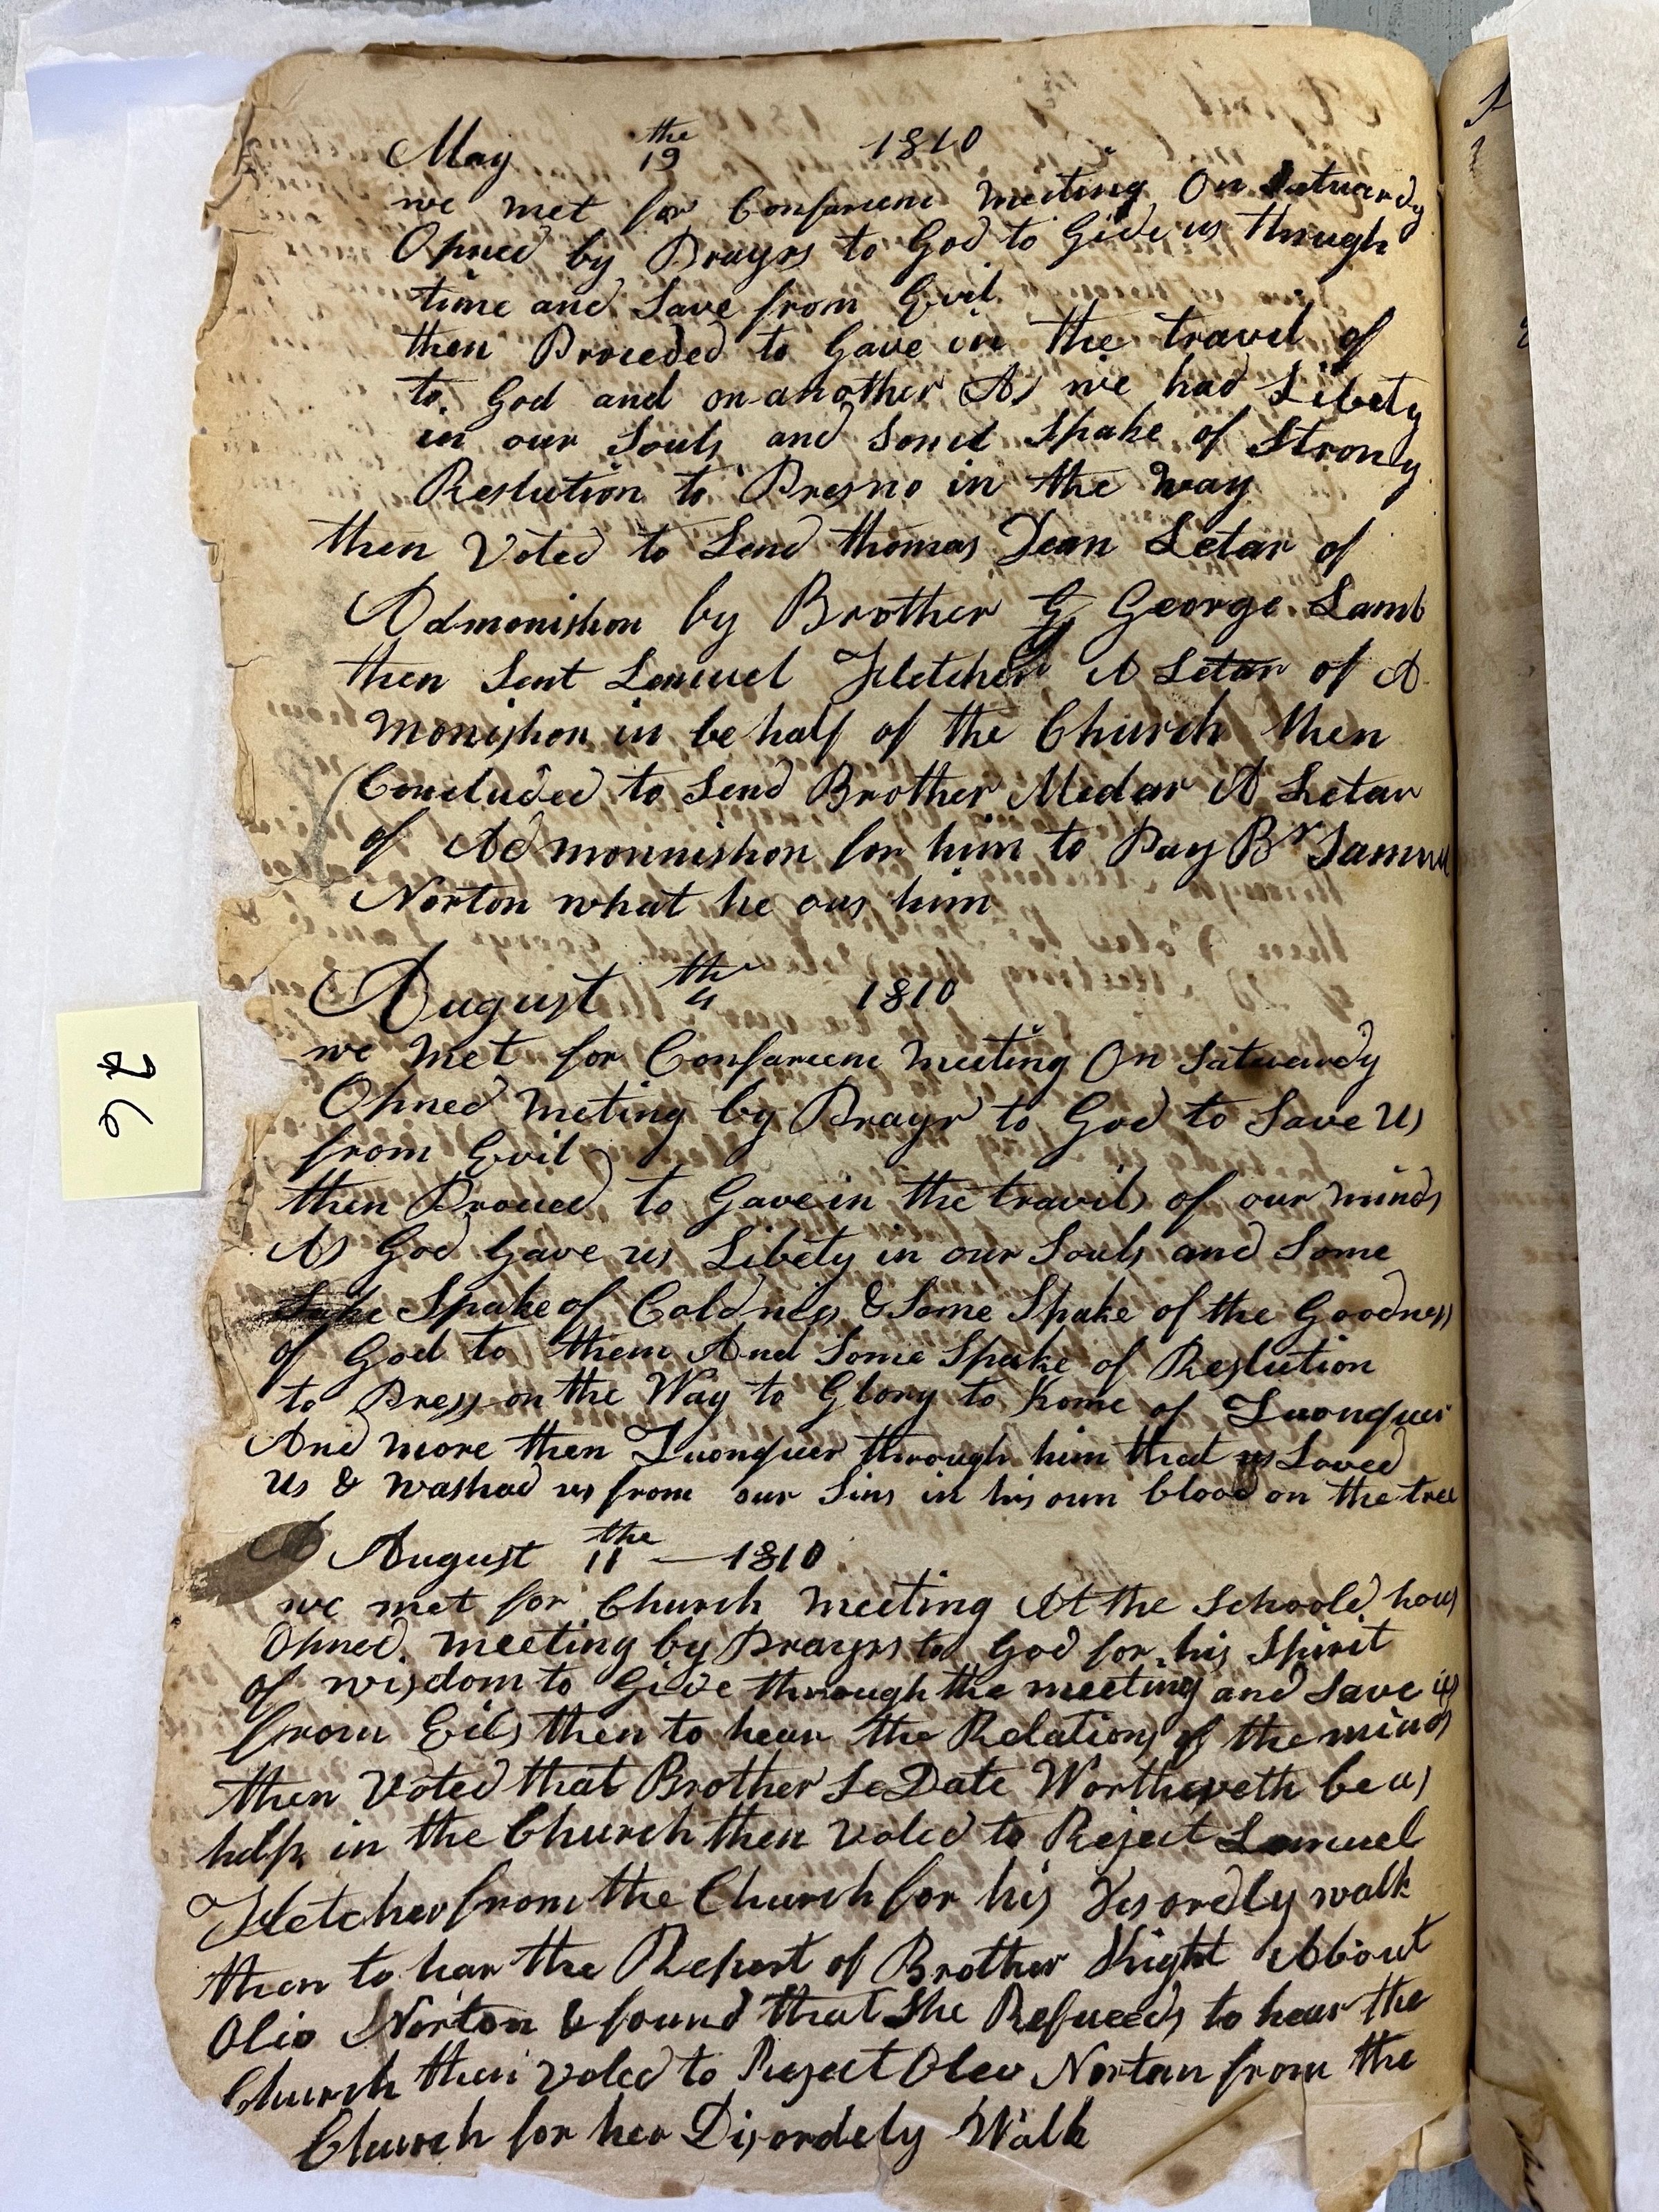 May the 19 1810
we met for Confarienc meeting On Satuardy
Opned by Prayrs to God to Gide us through
time and Save from Evil
then Proceded to Gave in the travil of
to God and on another As we had Libety
in our Souls and Some Spake of Strong
Reslution to Presno in the way
then Voted to Send thomas Dean Letar of
Admonishon by Brother G George Lamb
then Sent Lemuel Fletcher A Letar of A
monishon in be half of the Church then
Concluded to Send Brother Medar A Letar
of Admonnishon for him to Pay Br Samuel
Norton what he ous him
August th 4 1810
we met for Confarienc meeting On Satuardy
Opned meting by Prayr to God to Save us
from Evil
then Proued to Gave in the travils of our minds
As God Gave us Libety in our Souls and Some
Spake of Coldness & Some Spake of the Goodness
of God to them And Some Spake of Reslution
to Press on the Way to Glory to Kome of
And more then through him that Loved
us & washed us from our Sins in his own blood on the tree
August the 11 — 1810
we met for Church meeting At the Schoole hous
Opned meeting by Prayrs to God for his Spirit
of wisdom to Gide through the meeting and Save us
from Evils then to hear the Relations of the minds
then Voted that Brother Wortheveth be as
help in the Church then voted to Reject Lemuel
Fletcher from the Church for his Disordly walk
then to hear the Report of Brother Knight About
Olio Norton & found that She Refueeds to hear the
Church then voted to Reject Oleo Nortan from the
Church for her Disordely Walk
26